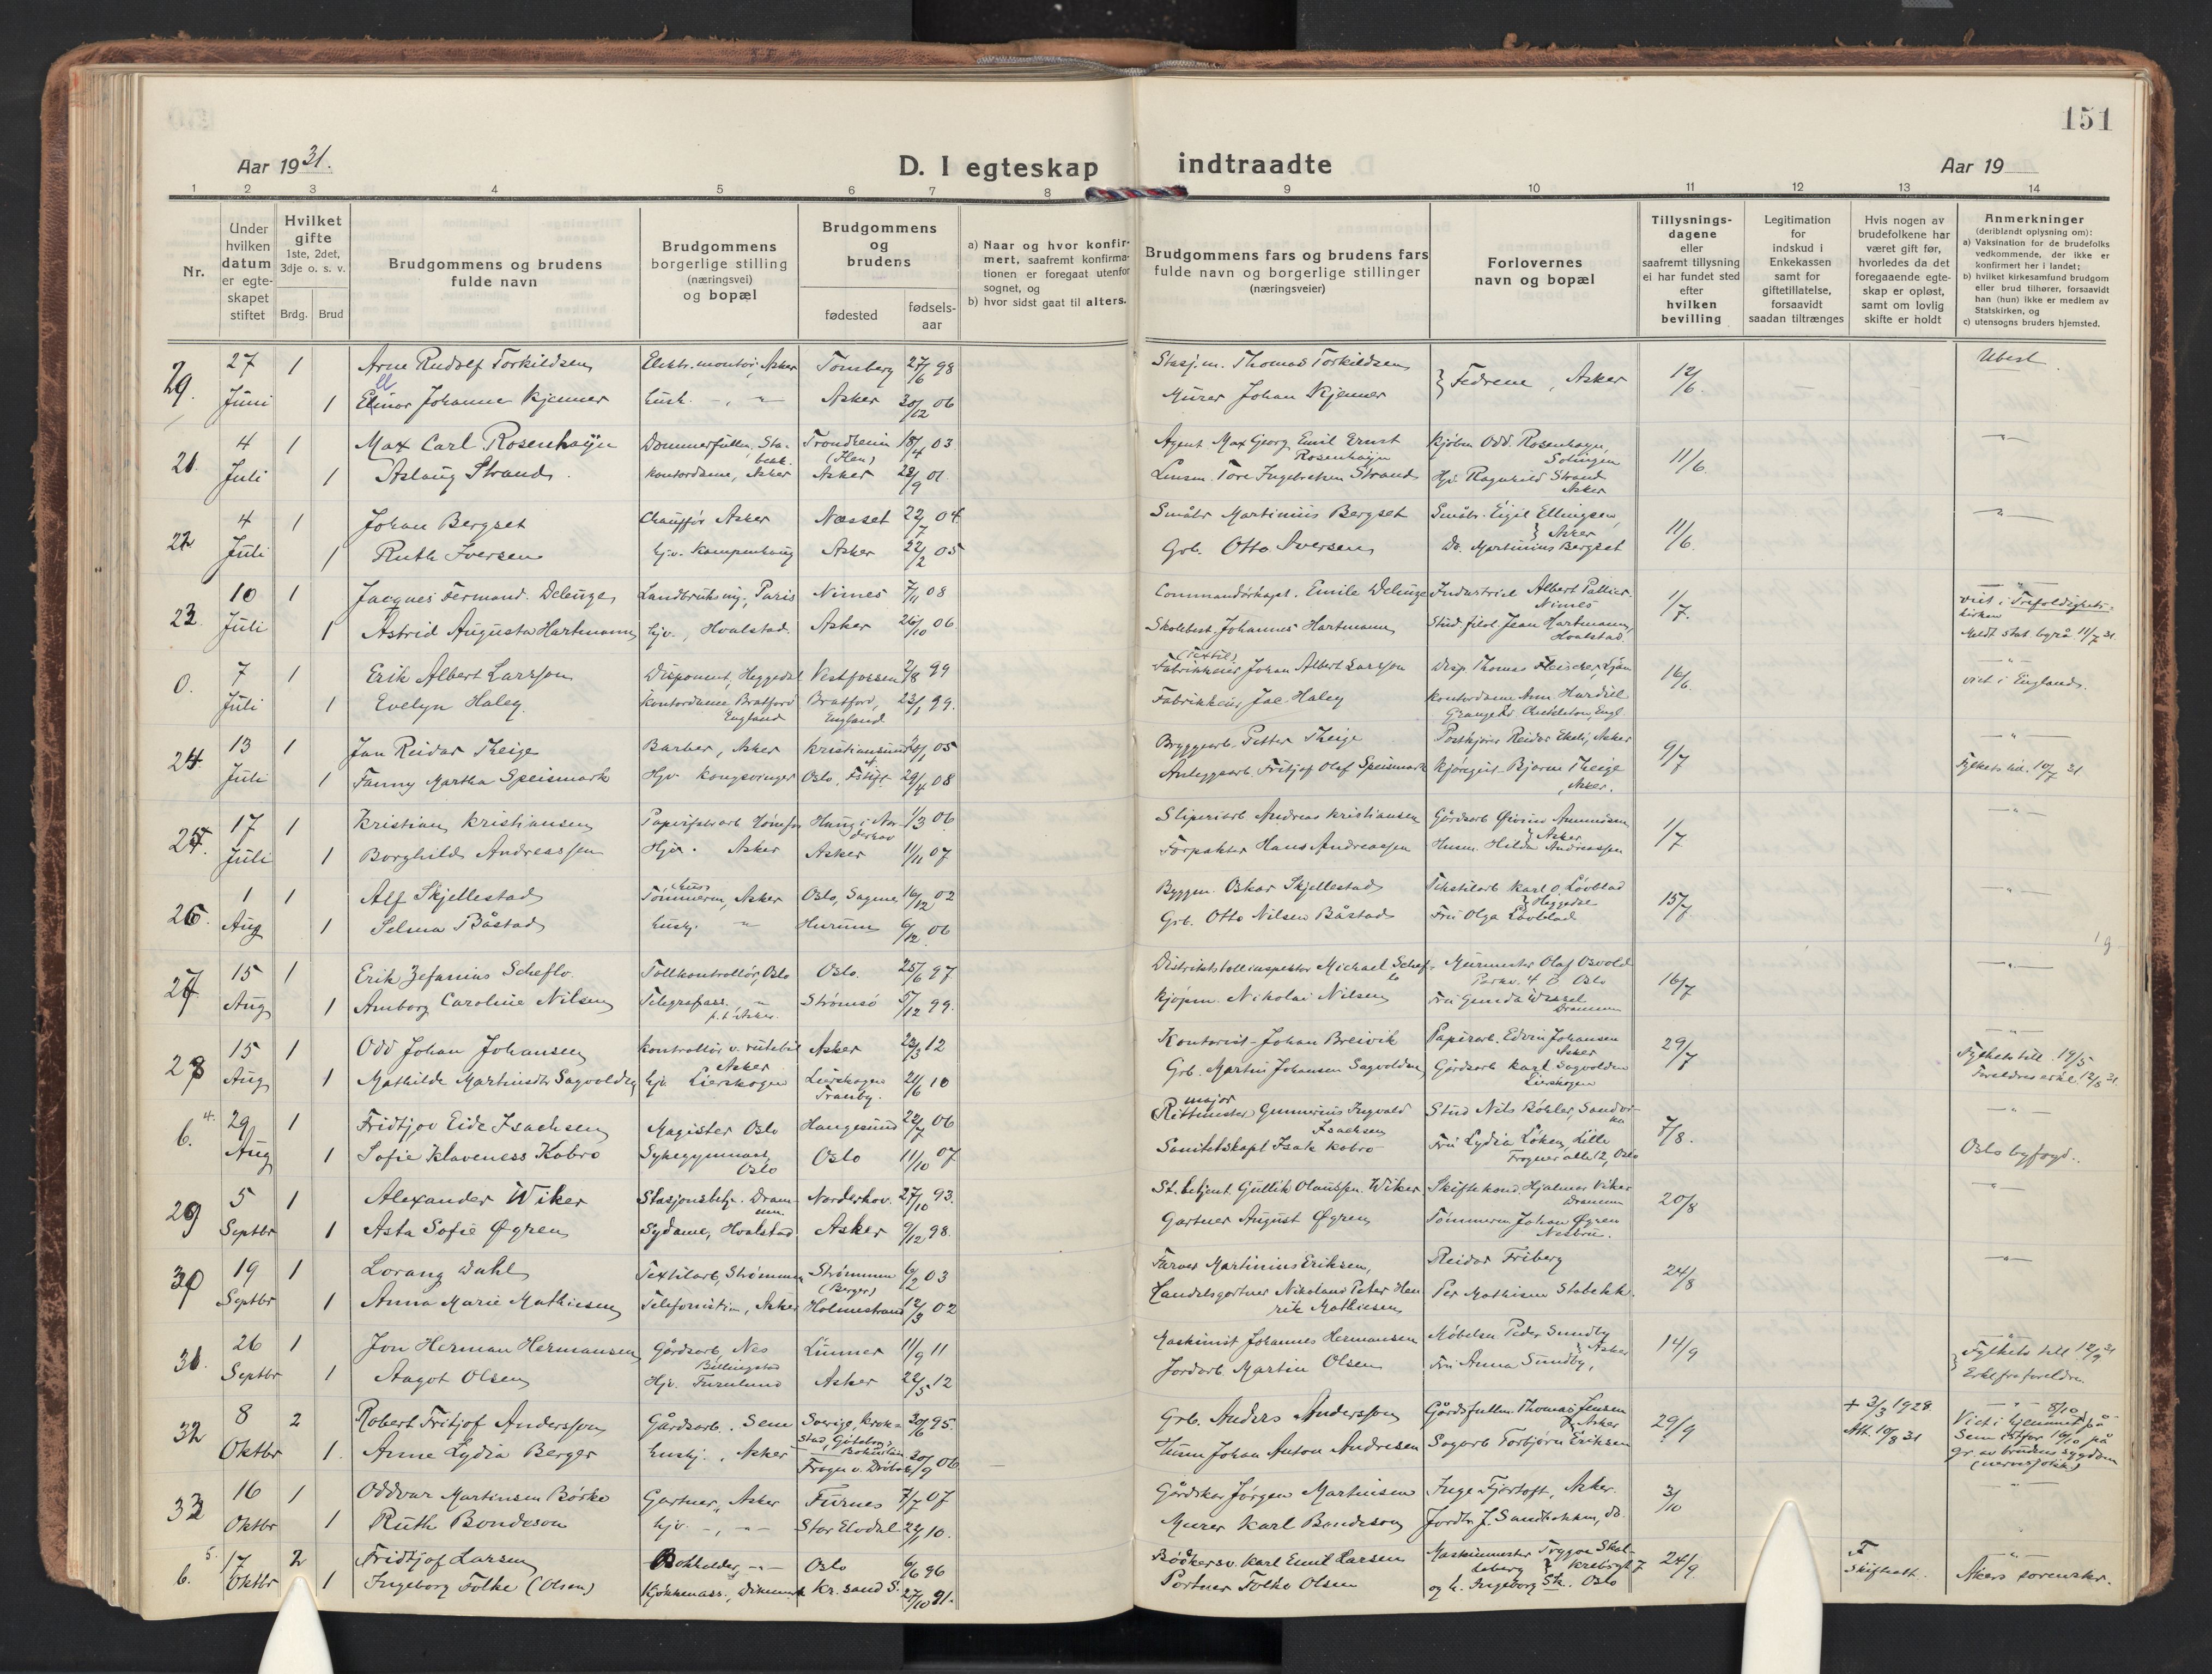 151
Aar 1931.
D. I egteskap indtraadte
Aar 19
1 2 3 4 5 6 7 8 9 10 11 12 13 14
Nr.
Under hvilken datum er egteskapet stiftet
Hvilket gifte 1ste, 2det, 3dje o. s. v.
Brdg. Brud
Brudgommens og brudens fulde navn
Brudgommens borgerlige stilling (næringsvei) og bopæl
Brudgommens og brudens
fødested
fødsels-aar
a) Naar og hvor konfir-
mert, saafremt konfirma-
tionen er foregaat utenfor
sognet, og
b) hvor sidst gaat til alters.
Brudgommens fars og brudens fars
fulde navn og borgerlige stillinger
(næringsveier)
Forlovernes
navn og bopæl
Tillysnings-
dagene
eller
saafremt tillysning
ei har fundet sted
efter
hvilken
bevilling
Legitimation
for
indskud i
Enkekassen
samt for
giftetillatelse,
forsaavidt
saadan tiltrænges
Hvis nogen av
brudefolkene har
været gift før,
hvorledes da det
foregaaende egte-
skap er opløst,
samt om lovlig
skifte er holdt
Anmerkninger
(deriblandt oplysning om):
a) Vaksination for de brudefolks
vedkommende, der ikke er
konfirmert her i landet;
b) hvilket kirkesamfund brudgom
eller brud tilhører, forsaavidt
han (hun) ikke er medlem av
Statskirken, og
c) utensogns bruders hjemsted.
27 1 Arne Rudolf Torkildsen Elektr.montør, Asker Tønsberg 27/6 98 Stasj.m. Thomas Torkildsen } Fedrene, Asker 12/6. Ubest.
Juni 1 Ellinor Johanne Kjenner Husk. -„- Asker 30/12 06 Murer Johan Kjenner
21. 4 1 Max Carl Rosenhayn Trondheim (Ilen) 18/4 03 Agent Max Georg Emil Ernst Rosenhayn Kjøbm Odd. Rosenhayn, Solingen 11/6. -„-
Juli 1 Aslaug Strand. Kontordame, Asker Asker 28/9 01 Lensm. Tore Ingebretsen Strand Hj. Ragnhild Strand Asker
22 4 1 Johan Bergset Chauffør Asker Nesset 22/7 04 Småbr Martinius Bergset Småbr. Eigil Ellingsen, } Asker 11/6. -„-
Juli 1 Ruth Iversen hjv. Asker 22/2 05 Grb. Otto Iversen Do. Martinius Bergset
23. 10 1 Jacques Fermand. Deleuze Landbruksing., Paris Nimes 7/11 08 Commandørkapt. Emile Deleuze Industriel Albert Pallier. Nimes 1/7. -„- viet i Trefoldighets-kirken
Juli 1 Astrid Augusta Hartmann hjv., Hvalstad. Asker 26/10 06 Skolebest. Johannes Hartmann Stud filol. Jean Hartmann, Hvalstad Meldt stat. byrå. 11/7 31.
0. 7 1 Erik Albert Larsson Disponent, Heggedal Vestfossen 2/8 99 (Textil) Fabrikkeier Johan Albert Larsson Disp. Thomas Fleischer, Ljan 16/6 -„- viet i England.
Juli 1 Evelyn Haley. Kontordame Bratford England Bratford, England 23/1 99. Fabrikkeier Joe Haley Kontordame Ann
24. 13 1 Jan Reidar Theige Barber, Asker Kristiansund 05 Bryggearb. Petter Theige Postkjører Reidar Ekeli, Asker 9/7 -„-
Juli 1 Fanny Martha Speismark Hjv. Kongsvinger Oslo, 29/4 08 Anleggsarb. Fritjof Olaf Speismark Bjarne Theige, Asker. 10/7 31
25. 17 1 Kristian Kristiansen Haug i Norderhov 1/3 06 Sliperiarb Andreas Kristiansen Gårdsarb Øivind Amundsen } Asker 1/7 -„-
Juli 1 Borghild Andreassen Hjv. Asker Asker 11/11 07 Forpakter Hans Andreassen Husm. Hilda Andreassen
26. 1 1 Alf Skjellestad Tømmerm, Asker Oslo, Sagene 16/12 02 Byggm. Oskar Skjellestad Tekstilarb Karl O. Løvblad } Heggedal 15/7 -„-
Aug 1 Selma Båstad husj. -„- Hurum 6/12 06 Grb. Otto Nilsen Båstad Fru Olga Løvblad
27 15 1 Erik Zefanius Scheflo Tollkontrollør, Oslo Oslo. 25/6 97 Distriktstollinspektør Michael Scheflo Murmester Olaf Osvold Parkv. 4 B Oslo 16/7 -„-
Aug 1 Amborg Caroline Nilsen Telegrafass. -„- p.t. Asker. Strømsø 5/12 99. Kjøpm. Nikolai Nilsen Fru Gunda Wessel Drammen
28 15 1 Odd Johan Johansen Kontrollør v. rutebil Asker Asker 23/3 12 Kontorist Johan Breivik Papirarb. Edvin Johansen Asker 29/7 -„- Fylkets till. 19/5
Aug 1 Mathilde Martinsdtr Sagvolden hjv. Lierskogen Lierskogen Tranby. 21/6 10 Grb. Martin Johansen Sagvolden Gårdsarb Karl Sagvolden Lierskogen Foreldres erkl. 12/5 31
4. 6. 29 1 Fridtjov Eide Isachsen Magister Oslo Haugesund 22/7 06 major Rittmester Gunnerius Ingvald Isachsen Stud Nils Bøhler, Sandvika 7/8. -„-
Aug 1 Sofie Klaveness Kobro Sykegymnast, Oslo Oslo 11/10 07 Sanitetskapt Isak Kobro Fru Lydia Løken, Lille Frogner alle 12, Oslo Oslo byfogd.
29 5 1 Alexander Wiker Stasjonsbetj. Drammen. Norderhov. 27/10 93. St. betjent Gullik Olaussen Wiker Skiftekond. Hjalmar Viker Drammen 20/8 -„-
Septbr 1 Asta Sofie Øgren Sydame, Hvalstad Asker 9/12 98. Gartner August Øgren Tømmerm Johan Øgren Nesbru.
30 19 1 Lorang Dahl Textilarb, Strømmen Strømmen (Berger) 6/2 03 Farver Martinius Eriksen, Reidar Friberg 24/8 -„-
Septbr 1 Anna Marie Mathiesen Telefonistin, Asker Holmestrand 12/3 02 Handelsgartner Nikolaus Peter Henrik Mathiesen Per Mathisen Stabekk.
31. 26 1 Jon Herman Hermansen Gårdsarb, Nes Billingstad Lunner 11/9 11 Maskinist Johannes Hermansen Peder Sundby } Asker 14/9 -„- } Fylkets till. 12/9 31
Septbr 1 Aagot Olsen Hjv. Furulund Asker 22/5 12 Jordarb. Martin Olsen Fru Anna Sundby, Erkl fra foreldre.
32 8 2 Robert Fritjof Andersson Gårdsarb. Sem Sverige, Krokstad, Göteborg Bohuslän 30/6 95. Grb. Anders Andersson Gårdsfullm. Thomas Jensen } Asker 29/9 + 2/3 1928. Att. 10/8 31 -„- 8/10 Viet i hjemmet på
Oktbr 1. Anne Lydia Berger husj., Asker Frogn v. Drøbak 30/9 06 Husm Johan Anton Andresen Sagarb Torbjørn Eriksen Sem istfor 16/10 på gr. av brudens sygdom
33 16 1 Oddvar Martinsen Børke Gartner, Asker Furnes 7/7 07 Gårdskar Jørgen Martinsen Inge Fjørtoft, Asker. 3/10 -„-
Oktbr 1 Ruth Bondeson hjv. -„- Stor Elvdal 10. Murer Karl Bondeson Jordbr J. Sandbakken, do.
5. 6. 17 2 Fridtjof Larsen Bokholder -„- Oslo 6/6 96 Bødkersv. Karl Emil Larsen Maskinmester Trygve 24/9 F. Skifteatt. -„-
Oktbr 1 Ingeborg Folke (Olsen) Kr.sand S. 27/10 91. Portner Folke Olsen og h. Ingeborg Sk. Oslo Akers sorenskr.